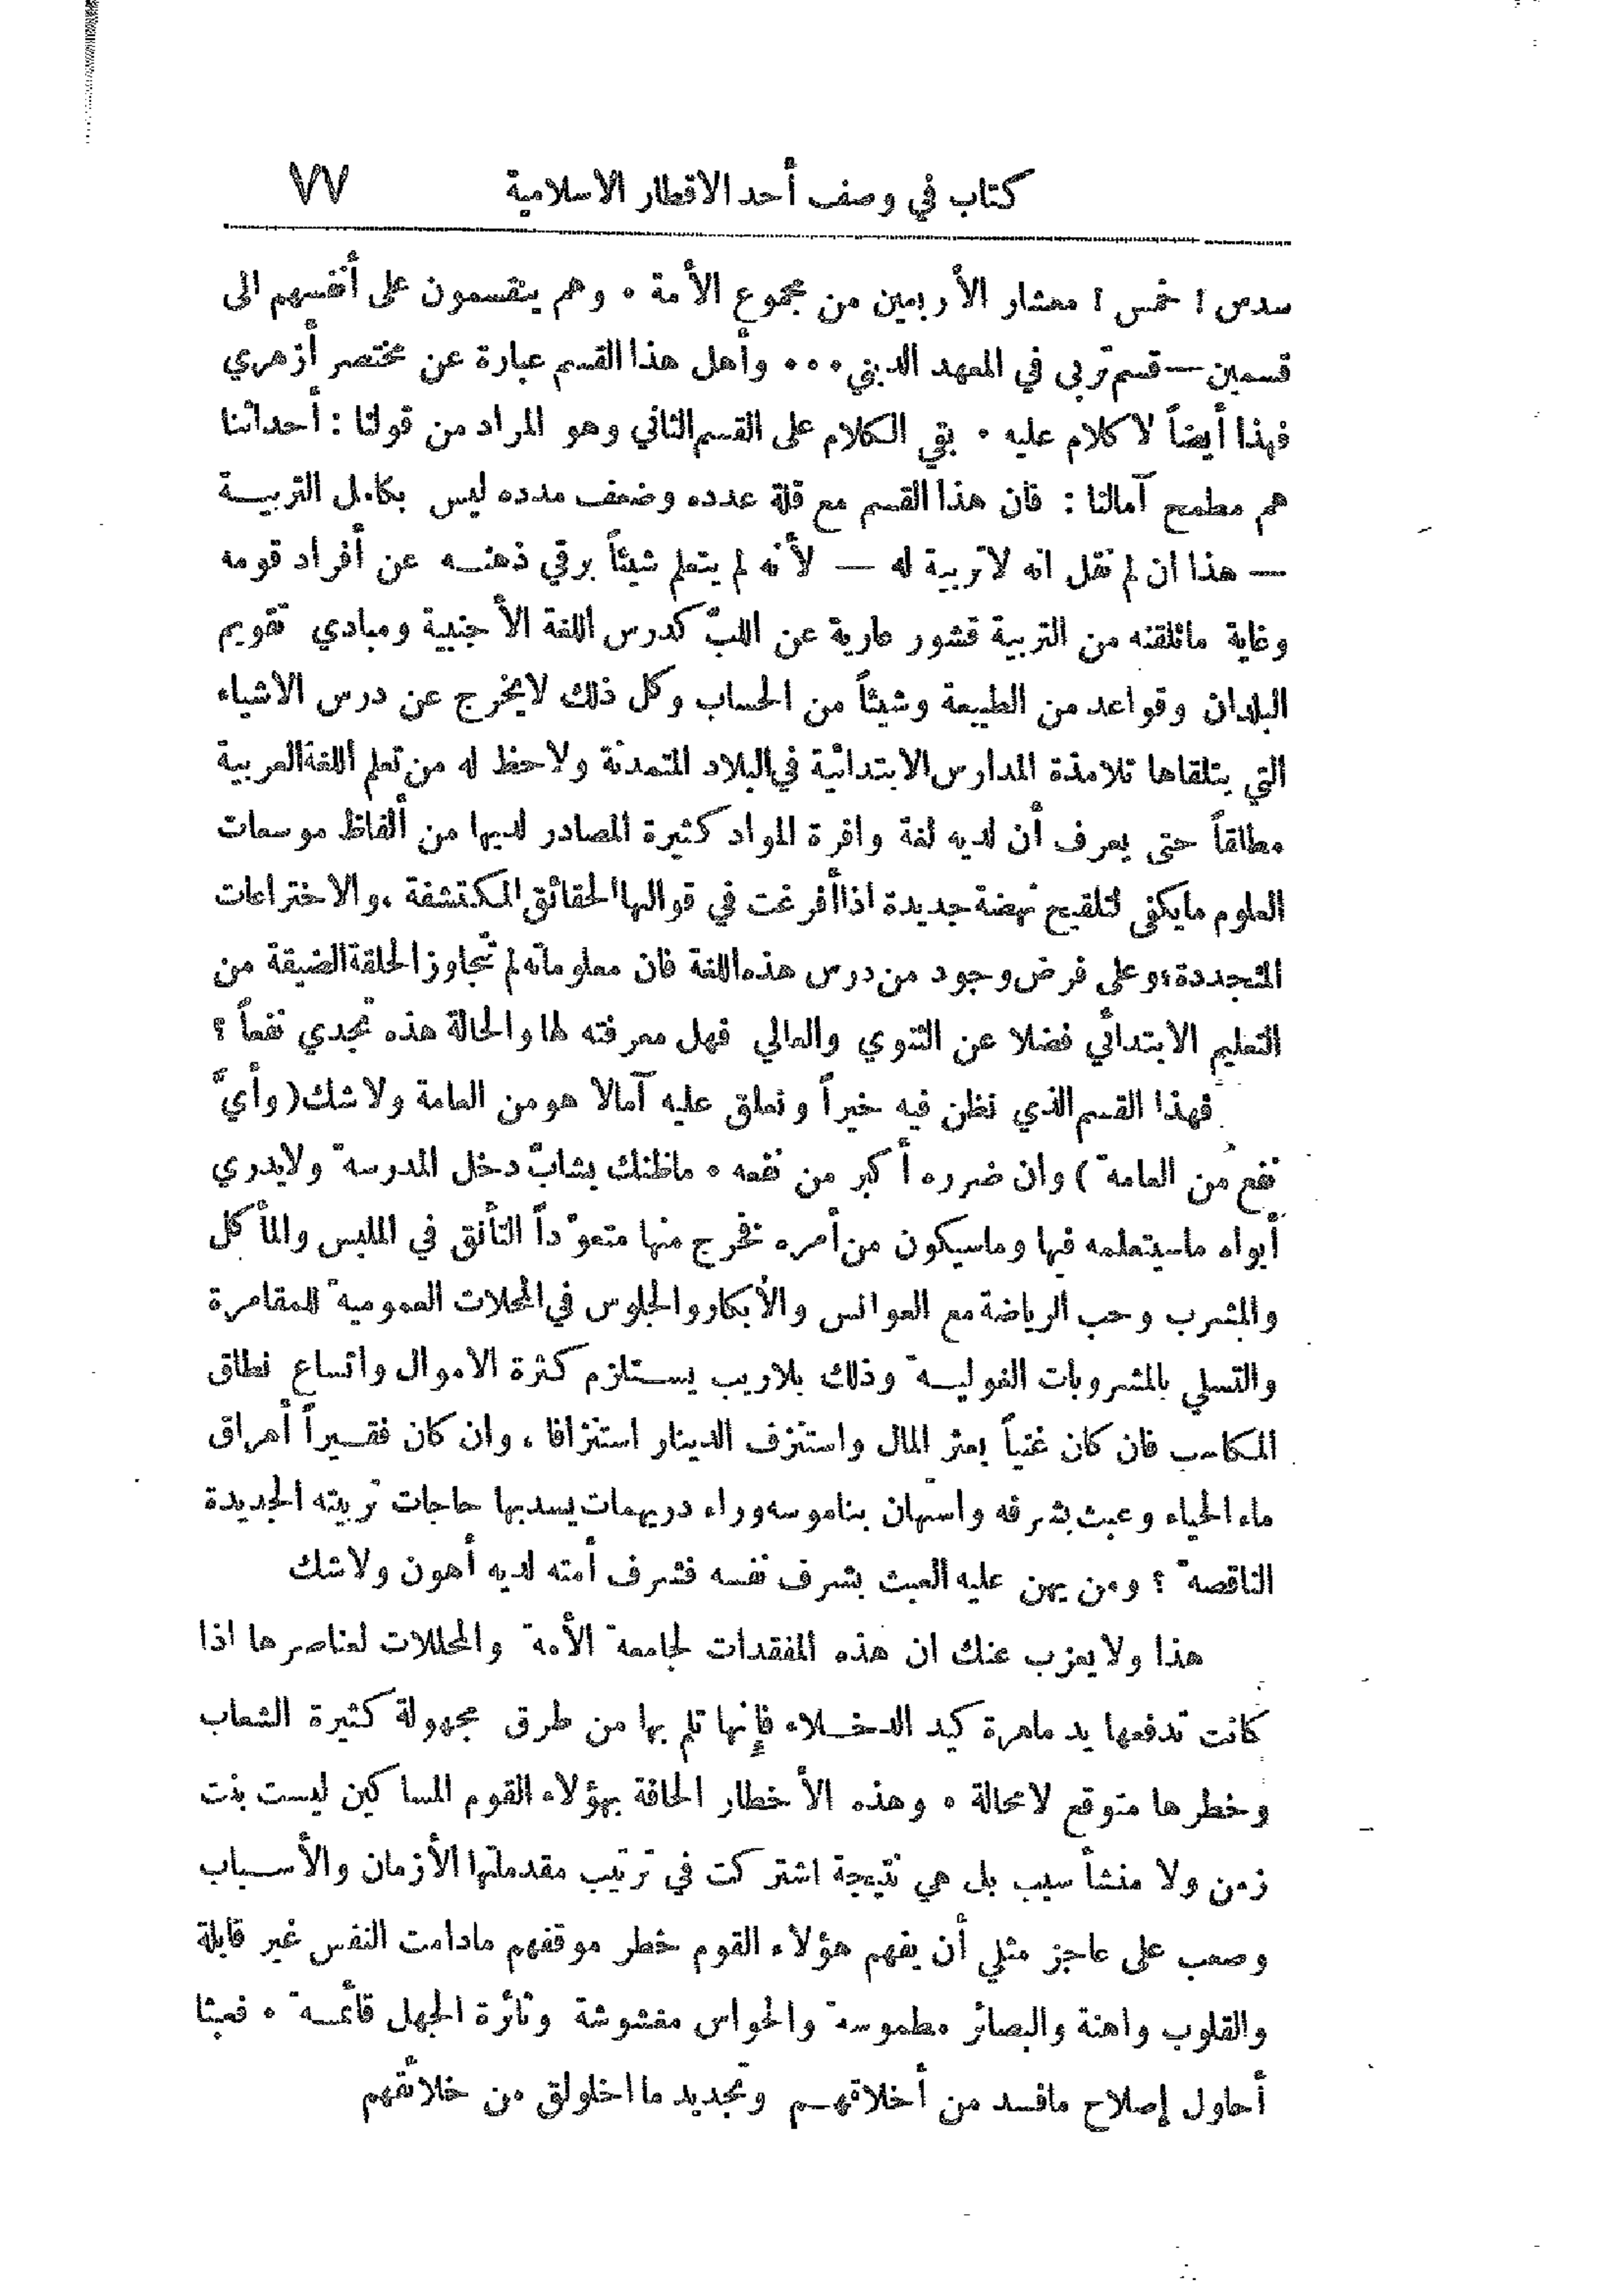 كتاب في وصف أحد الاقطار الاسلامية ٧٧
سدس ؛ خمس ؛ معشار الأربعين من مجموع الأمة ۰ وهم ينقسمون على أنفسهم الى
قسمين — قسم تربى في المعهد الديني ۰۰۰ وأهل هذا القسم عبارة عن مختصر أزهري
فهذا أيضاً لا كلام عليه ۰ بقي الكلام على القسم الثاني وهو المراد من قولنا : أحداثنا
هم مطمح آمالنا : فان هذا القسم مع قلة عدده وضعف مدده ليس بكامل التربية
— هذا ان لم نقل انه لا تربية له — لأنه لم يتعلم شيئاً يرقي ذهنه عن أفراد قومه
وغاية ما تلقنه من التربية قشور عارية عن اللبّ كدرس اللغة الأجنبية ومبادي تقويم
البلدان وقواعد من الطبيعة وشيئاً من الحساب وكل ذلك لا يخرج عن درس الاشياء
التي يتلقاها تلامذة المدارس الابتدائية في البلاد المتمدنة ولا حظ له من تعلم اللغة العربية
مطلقاً حتى يعرف أن لديه لغة وافرة المواد كثيرة المصادر لديها من ألفاظ موسعات
العلوم ما يكفي لتلقيح نهضة جديدة اذا أفرغت في قوالبها الحقائق المكتشفة ، والاختراعات
المتجددة ؛ وعلى فرض وجود من درس هذه اللغة فان معلوماته لم تتجاوز الحلقة الضيقة من
التعليم الابتدائي فضلا عن الثنوي والعالي فهل معرفته لها والحالة هذه تجدي نفعاً ؟
فهذا القسم الذي نظن فيه خيراً ونعلق عليه آمالا هو من العامة ولا شك ( وأيّ
نفع من العامة ) وان ضرره أكبر من نفعه ۰ ما ظنك بشابّ دخل المدرسة ولا يدري
أبواه ما سيتعلمه فيها وما سيكون من أمره فخرج منها متعوّداً التأنق في الملبس والمأكل
والمشرب وحب الرياضة مع العوانس والأبكار والجلوس في المحلات العمومية للمقامرة
والتسلي بالمشروبات الغولية وذلك بلاريب يستلزم كثرة الاموال واتساع نطاق
المكاسب فان كان غنياً بعثر المال واستنزف الدينار استنزافا ، وان كان فقيراً أهراق
ماء الحياء وعبث بشرفه واستهان بناموسه وراء دريهمات يسد بها حاجات تربيته الجديدة
الناقصة ؟ ومن يهن عليه العبث بشرف نفسه فشرف أمته لديه أهون ولا شك
هذا ولا يعزب عنك ان هذه المفقدات لجامعة الأمة والمحللات لعناصرها اذا
كانت تدفعها يد ماهرة كيد الدخلاء فإنها تلم بها من طرق مجهولة كثيرة الشعاب
وخطرها متوقع لا محالة ۰ وهذه الأخطار الحافة بهؤلاء القوم المساكين ليست بنت
زمن ولا منشأ سبب بل هي نتيجة اشتركت في ترتيب مقدماتها الأزمان والأسباب
وصعب على عاجز مثلي أن يفهم هؤلاء القوم خطر موقفهم ما دامت النفس غير قابلة
والقلوب واهنة والبصائر مطموسة والحواس مغشوشة وثائرة الجهل قائمة ۰ فعبثا
أحاول إصلاح ما فسد من أخلاقهم وتجديد ما اخلولق من خلائقهم